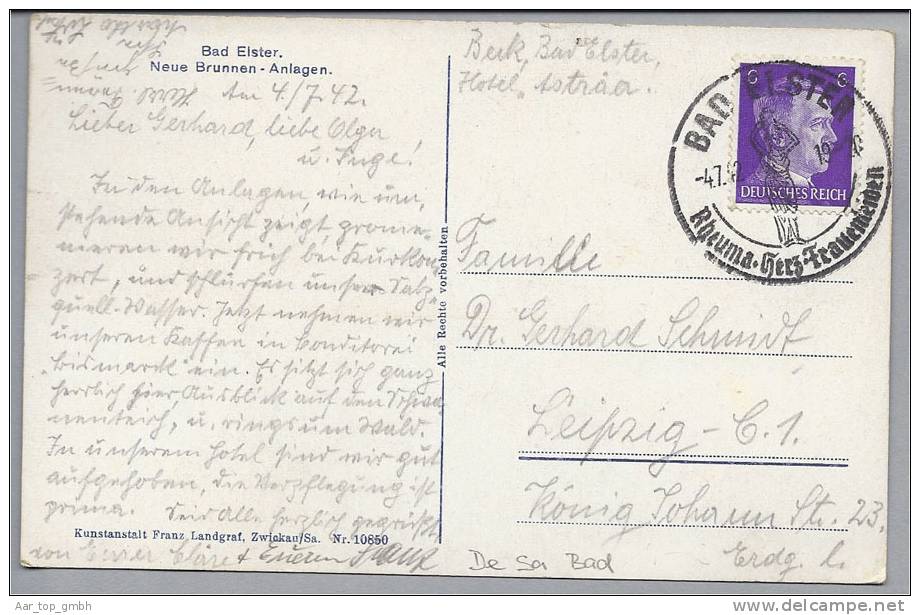 Bad Elster.
Neue Brunnen-Anlagen.
Am 4./7.42.
Lieber Gerhard, liebe Olga
u. Inge!
In den Anlagen, wie um,
stehende Ansicht zeigt, prome-
nieren wir früh bei Kurkon
zert, und schlürfen unser Salz
quell-Wasser. Jetzt nehmen wir
unseren Kaffee in Conditorei
"Bismarck" ein. Es sitzt sich ganz
herrlich hier, Ausblick auf den Schwa
nenteich, u. ringsum Wald.
In unserem Hotel sind wir gut
aufgehoben, die Verpflegung ist
prima. Seid Alle herzlich gegrüßt
Kunstanstalt Franz Landgraf, Zwickau/Sa. Nr. 10850
von Eurer Cläre + Eurem
Alle Rechte vorbehalten
Beck, Bad Elster,
Hotel Asträa.
6 6
DEUTSCHES REICH
BAD ELSTER
-4.7.42
Rheuma·Herz·Frauenleiden
Familie
Dr. Gerhard Schmidt
Leipzig-C.1.
König Johann Str. 23.
Erdg. l.
De Sa Bad
Aar_top_gmbh
delcampe.net